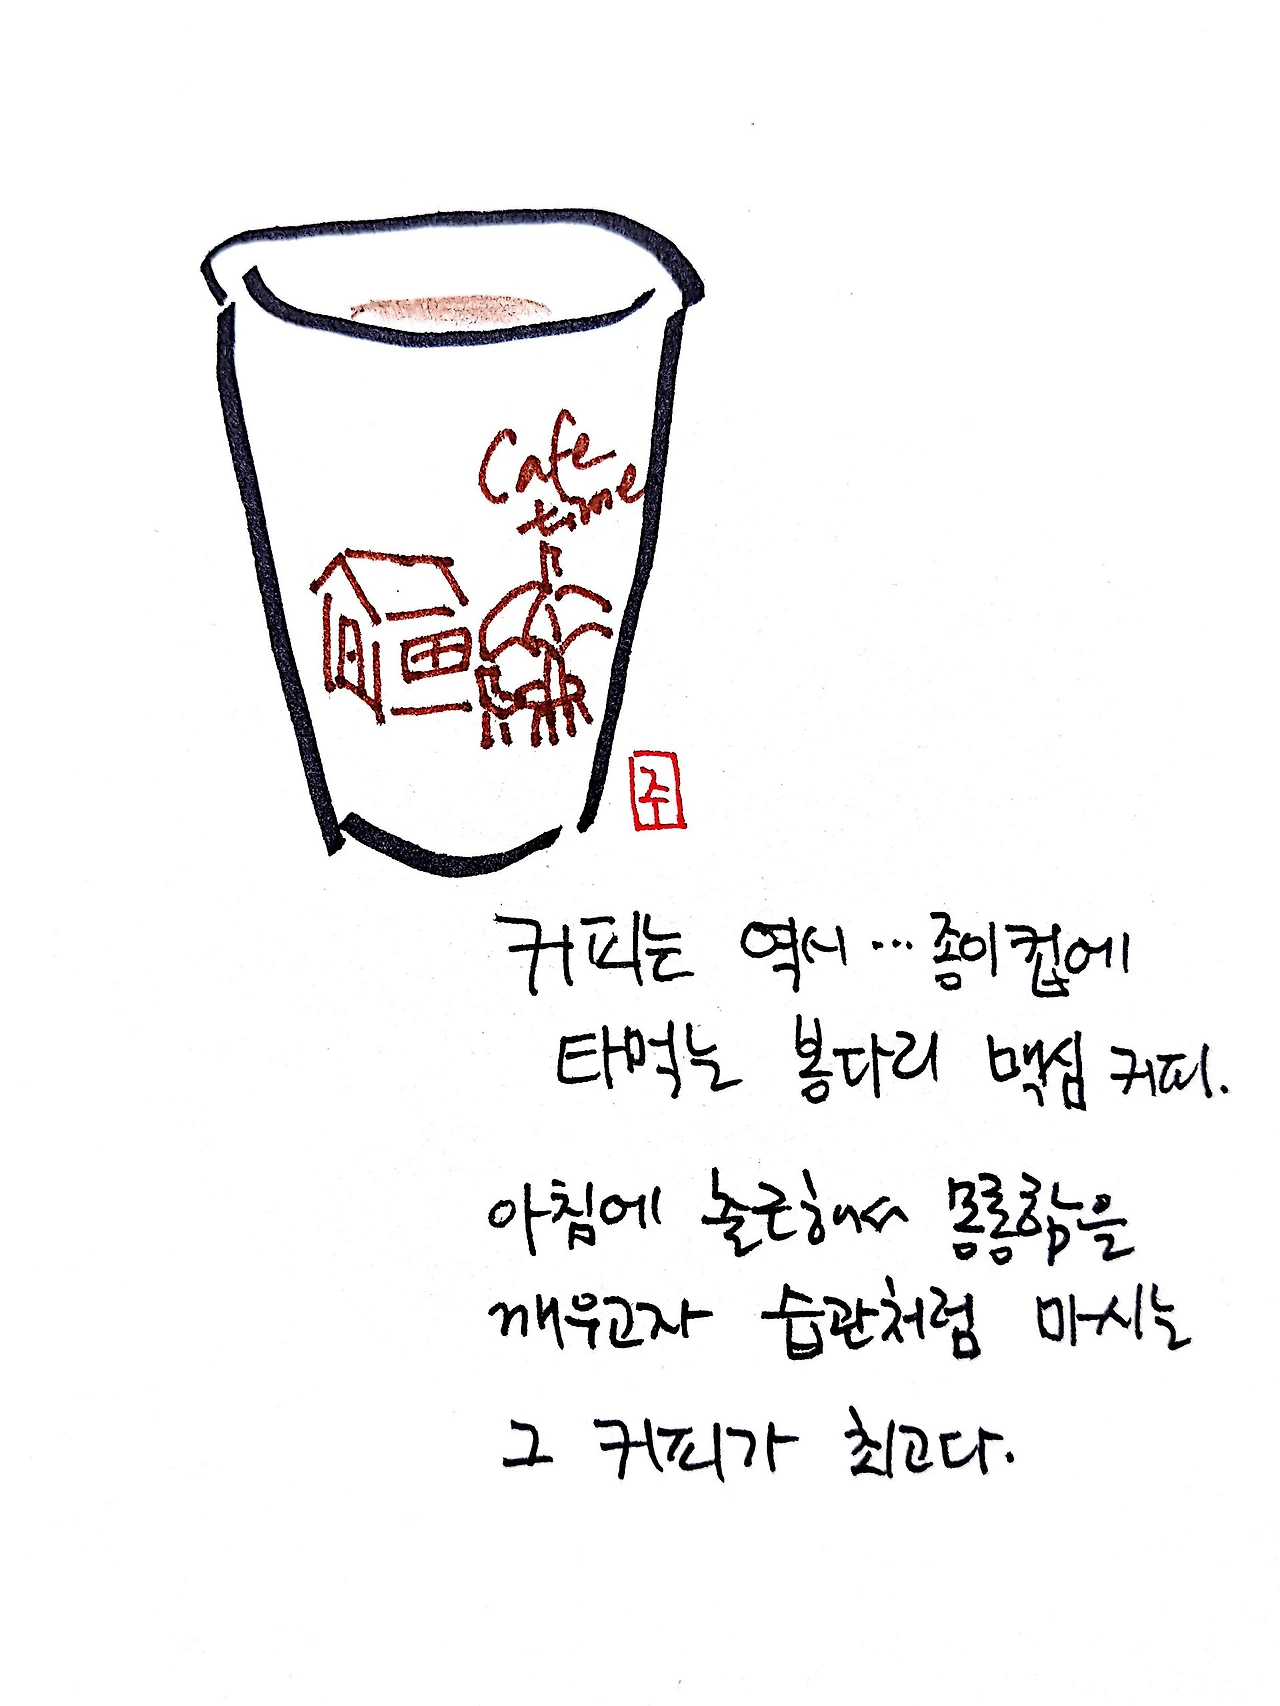 Cafe
time
주
커피는 역시 ... 종이컵에
타먹는 봉다리 맥심 커피.
아침에 출근해서 몽롱함을
깨우고자 습관처럼 마시는
그 커피가 최고다.